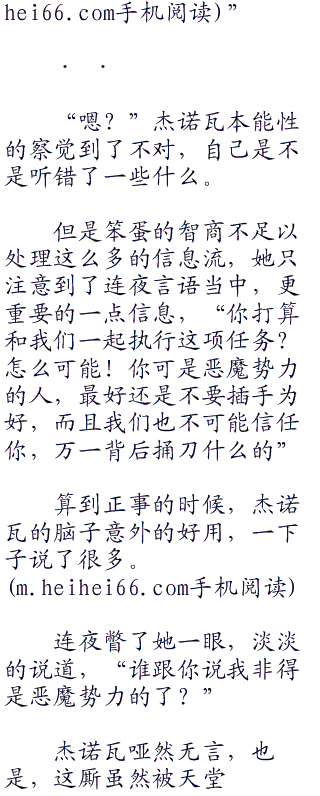 hei66.com手机阅读)”
· ·
“嗯？”杰诺瓦本能性
的察觉到了不对，自己是不
是听错了一些什么。
但是笨蛋的智商不足以
处理这么多的信息流，她只
注意到了连夜言语当中，更
重要的一点信息，“你打算
和我们一起执行这项任务？
怎么可能！你可是恶魔势力
的人，最好还是不要插手为
好，而且我们也不可能信任
你，万一背后捅刀什么的”
算到正事的时候，杰诺
瓦的脑子意外的好用，一下
子说了很多。
(m.heihei66.com手机阅读)
连夜瞥了她一眼，淡淡
的说道，“谁跟你说我非得
是恶魔势力的了？”
杰诺瓦哑然无言，也
是，这厮虽然被天堂